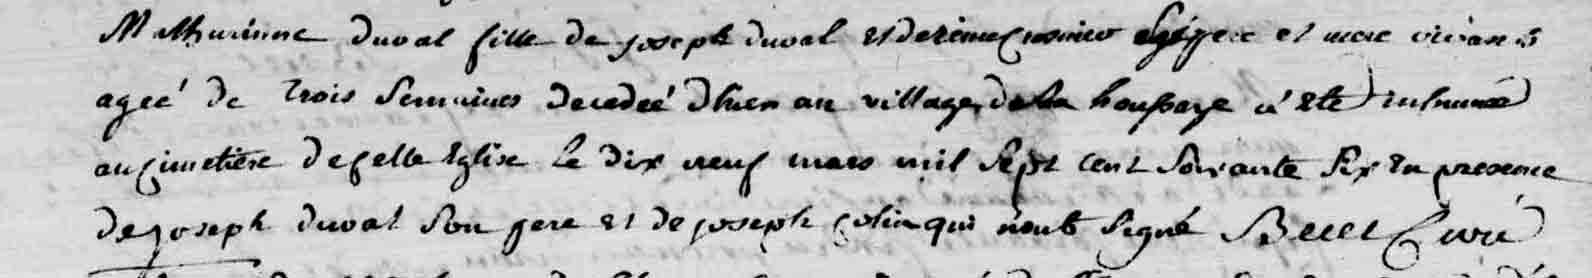 Mathurinne duval fille de joseph duval et de Ses pere et mere vivans
ageé de trois Semaines decedeé dhier au village de la houssaye a eté inhumée
au cimetiere de cette Eglise le dix neuf mars mil Sept cent Soixante Six En presence
de joseph duval Son pere et de joseph colin qui n'ont Signé Curé